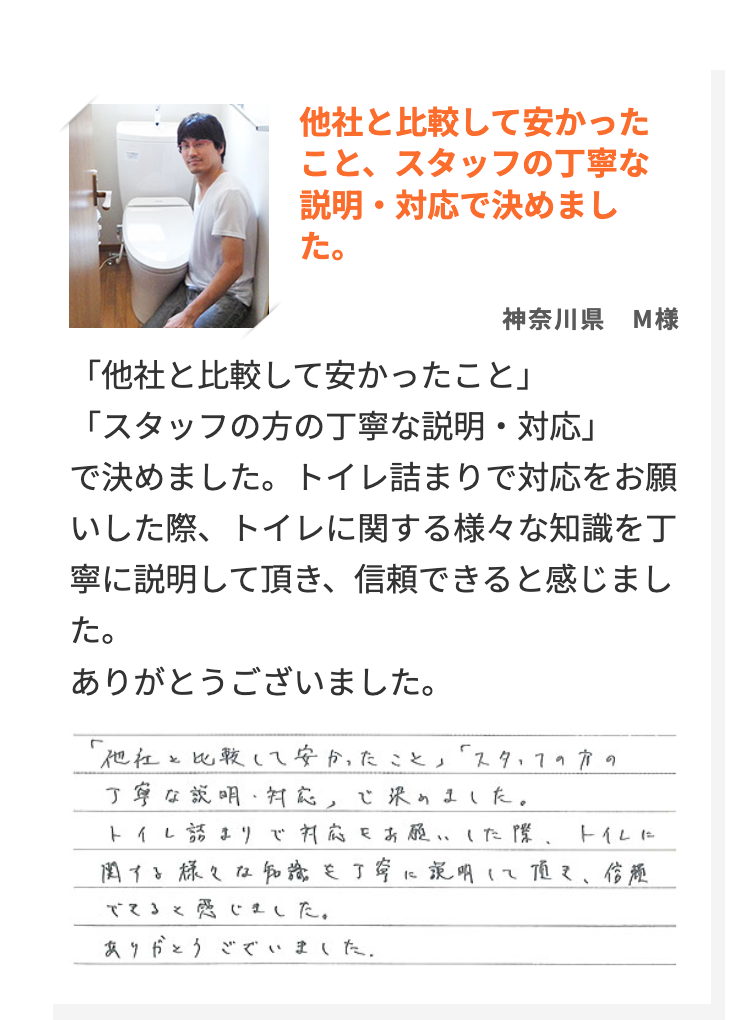 他社と比較して安かった
こと、スタッフの丁寧な
説明・対応で決めまし
た。
神奈川県　M様
「他社と比較して安かったこと」
「スタッフの方の丁寧な説明・対応」
で決めました。トイレ詰まりで対応をお願
いした際、トイレに関する様々な知識を丁
寧に説明して頂き、信頼できると感じまし
た。
ありがとうございました。
「他社と比較して安かったこと」「スタッフの方の
丁寧な説明・対応」で決めました。
トイレ詰まりで対応をお願いした際、トイレに
関する様々な知識を丁寧に説明して頂き、信頼
できると感じました。
ありがとうございました.